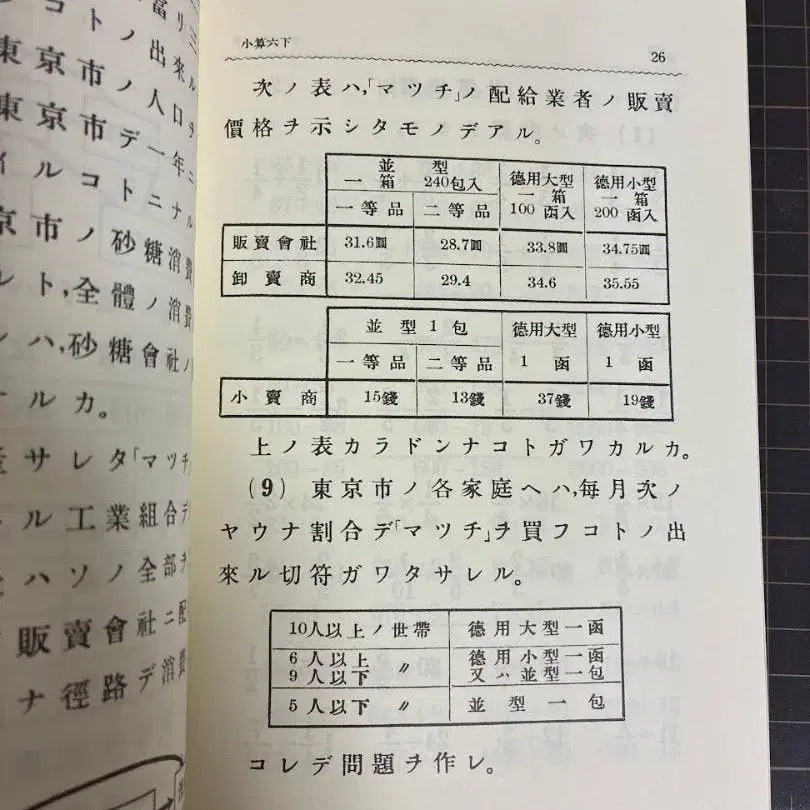 富リ
コトノ出來ル
東京市ノ人口ヲ
東京市デ一年ニ
イルコトニナル
京市ノ砂糖消費
レト,全體ノ消費
ハ,砂糖會社ノ
ルカ。
サレタ「マツチ」
ル工業組合デ
ハソノ全部ヲ
販賣會社ニ配
ナ徑路デ消費
小算六下
26
次ノ表ハ,「マツチ」ノ配給業者ノ販賣
價格ヲ示シタモノデアル。
並型 德用大型 德用小型
一箱 240包入 一箱 一箱
一等品 二等品 100函入 200函入
販賣會社 31.6圓 28.7圓 33.8圓 34.75圓
卸賣商 32.45 29.4 34.6 35.55
並型1包 德用大型 德用小型
一等品 二等品 1函 1函
小賣商 15錢 13錢 37錢 19錢
上ノ表カラドンナコトガワカルカ。
(9) 東京市ノ各家庭ヘハ,每月次ノ
ヤウナ割合デ「マツチ」ヲ買フコトノ出
來ル切符ガワタサレル。
10人以上ノ世帶 德用大型一函
6人以上 〃 德用小型一函
9人以下 又ハ並型一包
5人以下 〃 並型一包
コレデ問題ヲ作レ。